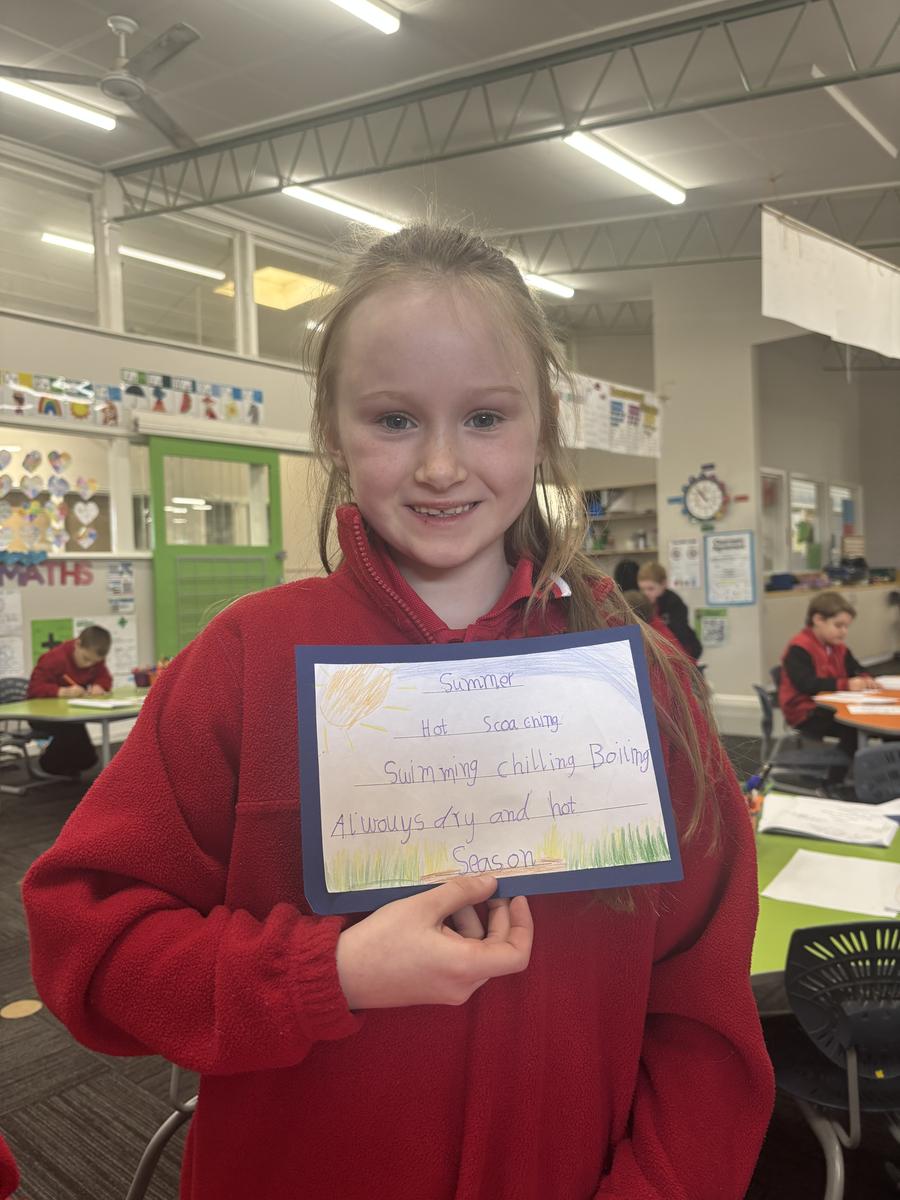 MATHS
Summer
Hot Scoaching
Swimming chilling Boiling
Alwouys dry and hot
Season